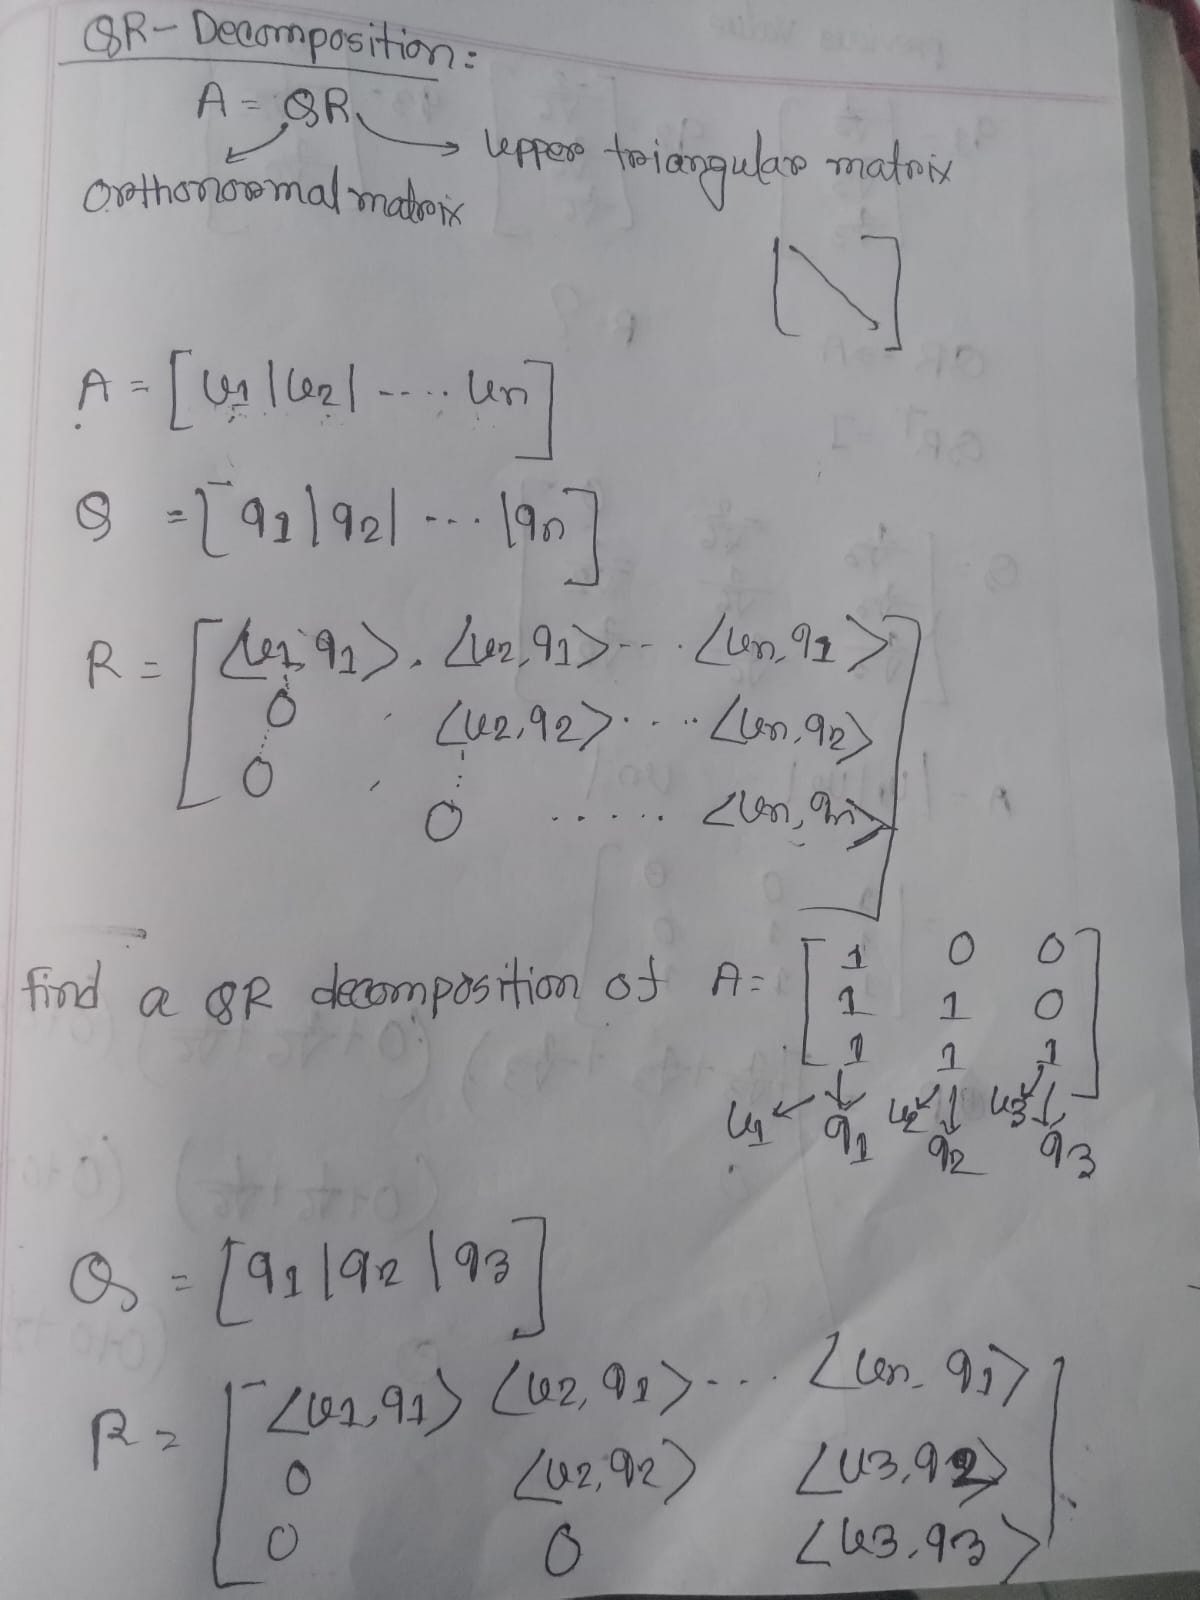 QR - Decomposition:
A = QR
Upper triangular matrix
Orthonormal matrix
A = [u1 | u2 | ..... un]
Q = [q1 | q2 | ... | qn]
R = [<u1, q1>. <u2, q1> --- . <un, q1>
0 <u2, q2> ..... <un, q2>
0 0 ..... <un, qn>]
find a QR decomposition of A = [1 0 0
1 1 0
1 1 1]
u1 q1 u2 q2 u3 q3
Q = [q1 | q2 | q3]
R = [<u1, q1> <u2, q1> --.. <un, q1>
0 <u2, q2> <u3, q2>
0 0 <u3, q3>]